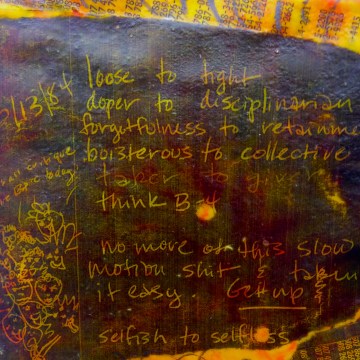 loose to tight
doper to disciplinarian
forgetfulness to retainm
boisterous to collective
taker to giver
think B-4
no more of this slow
motion shit & taken
it easy. Get up
selfish to selfless